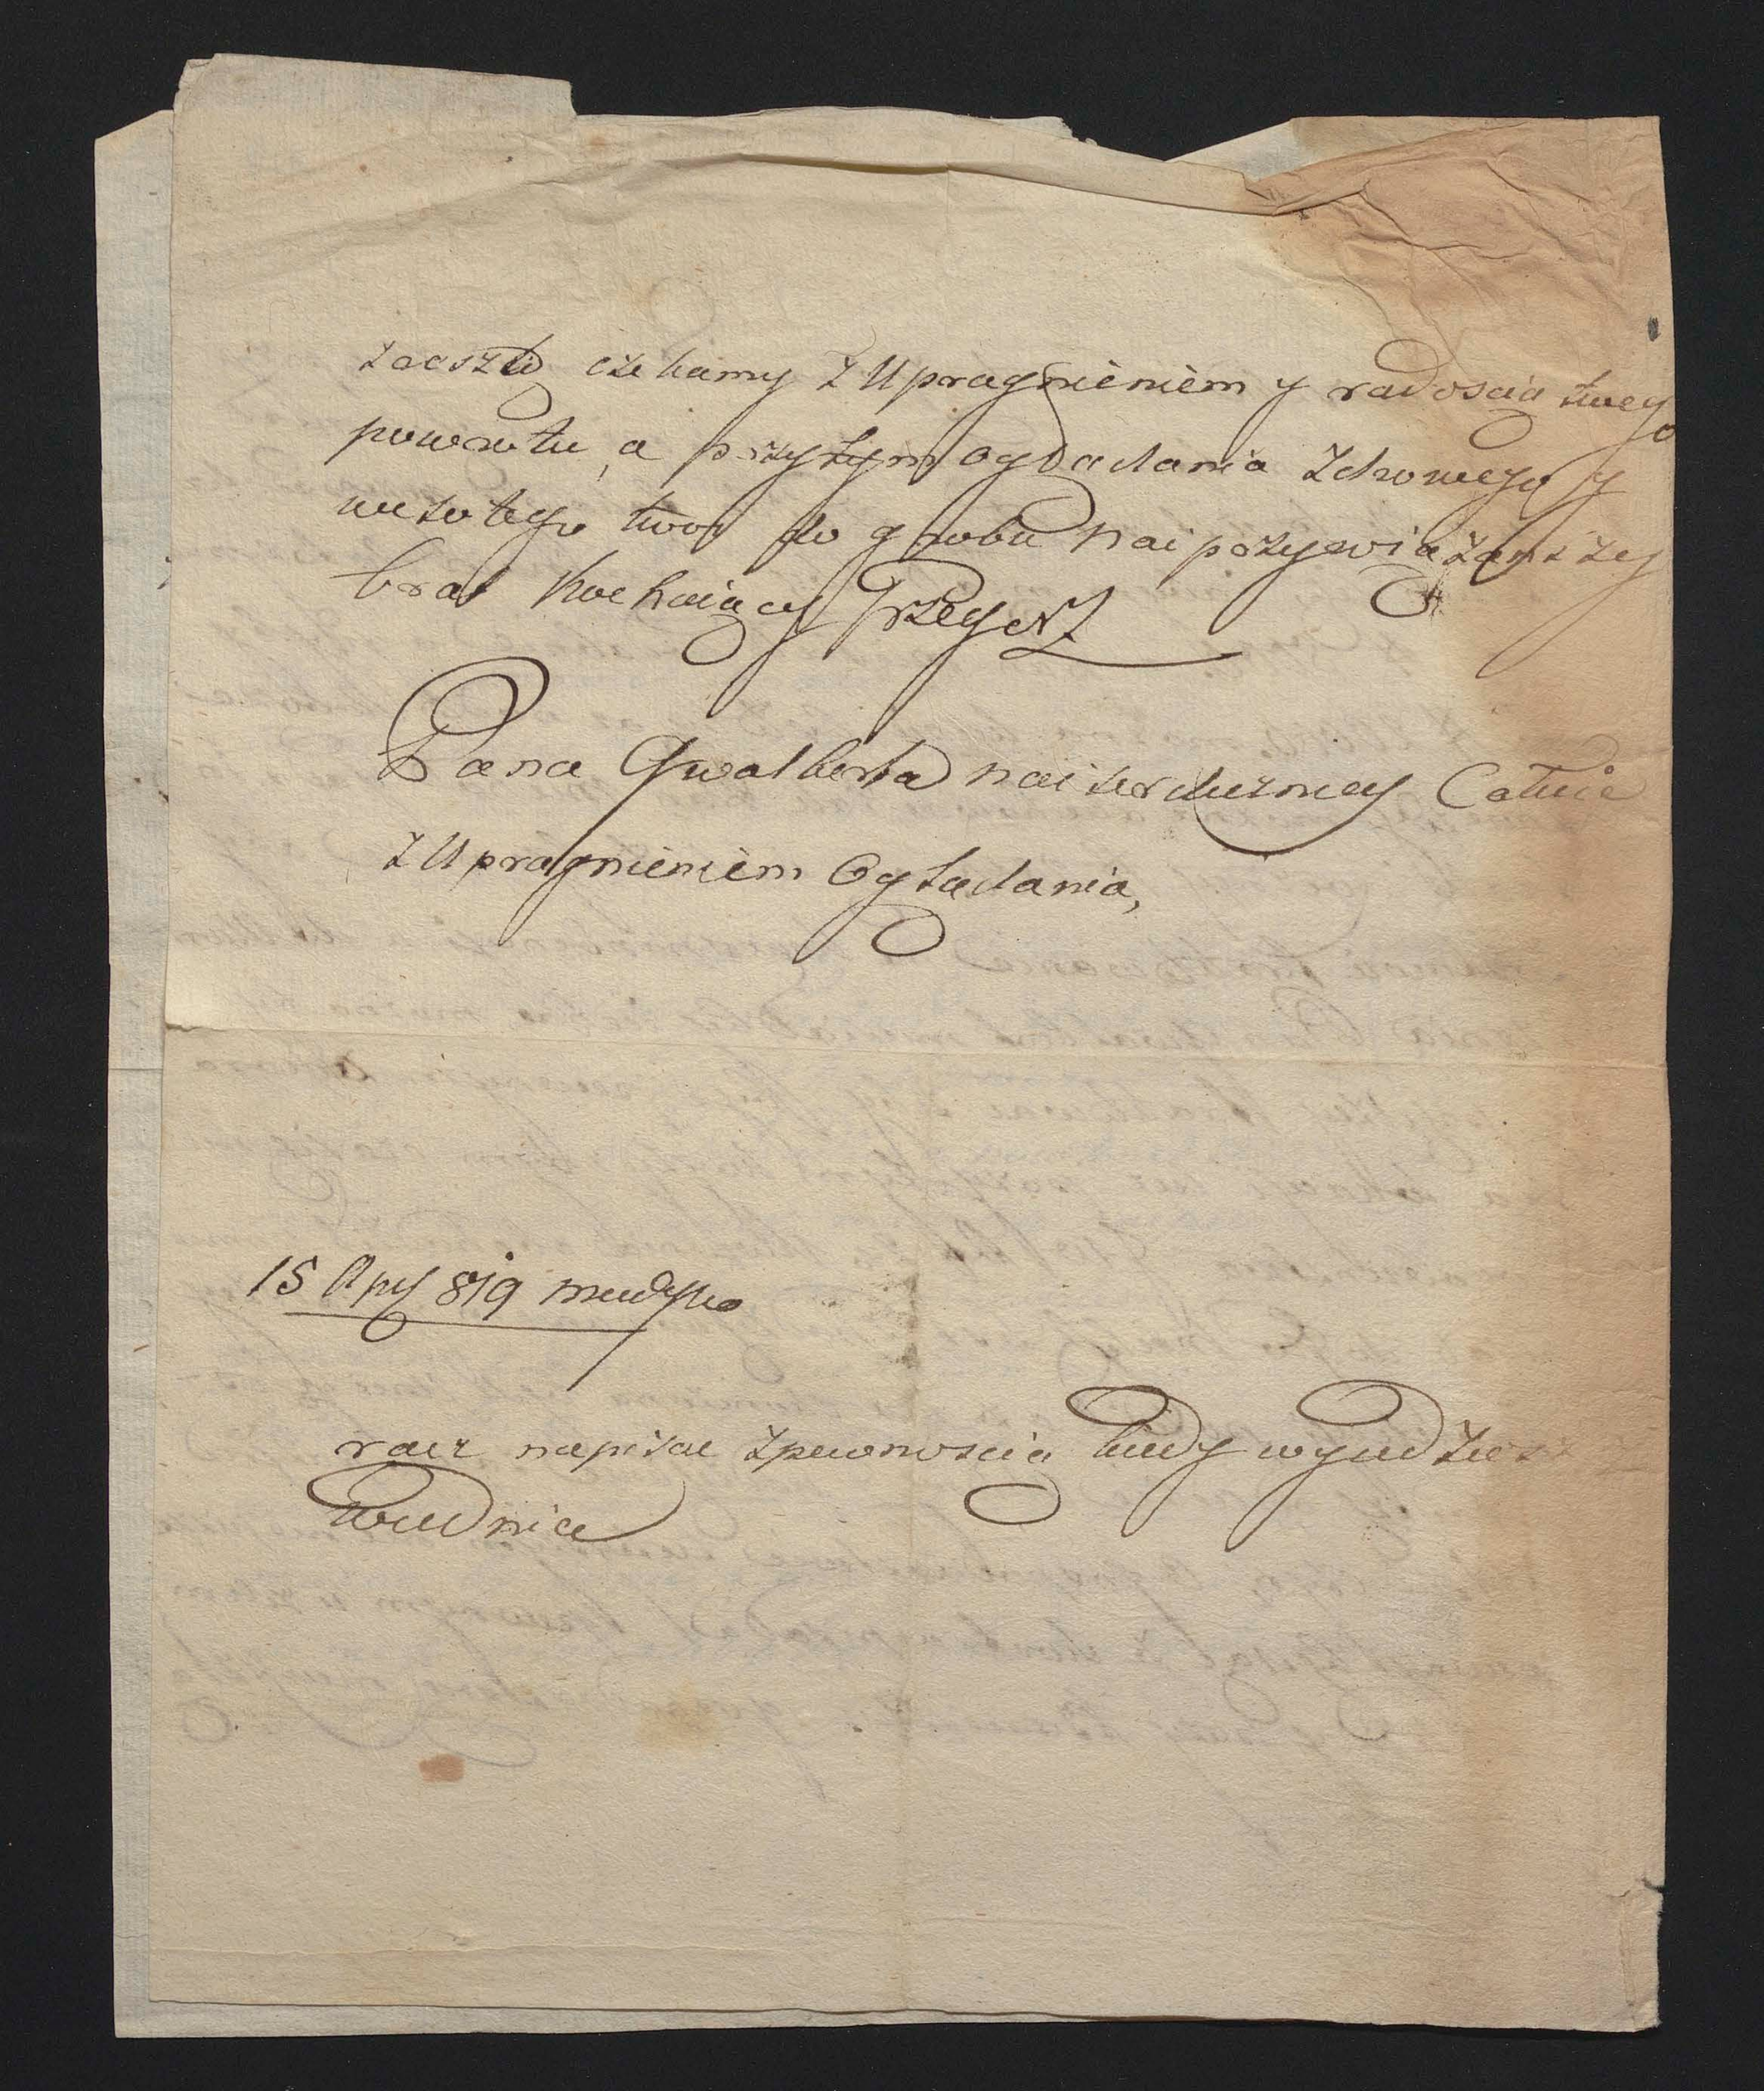 czekamy z Upragnieniem y radoscią twego
powrotu, a przytym oglądania zdrowego y
wesołego twoy do grobu naiprzywiązanszy
brat kochaiący Grzegorz
Pana Gwalberta naiserdeczniey Całuie
z Upragnieniem Oglądania,
15 819
racz napisac zpewnoscią kiedy